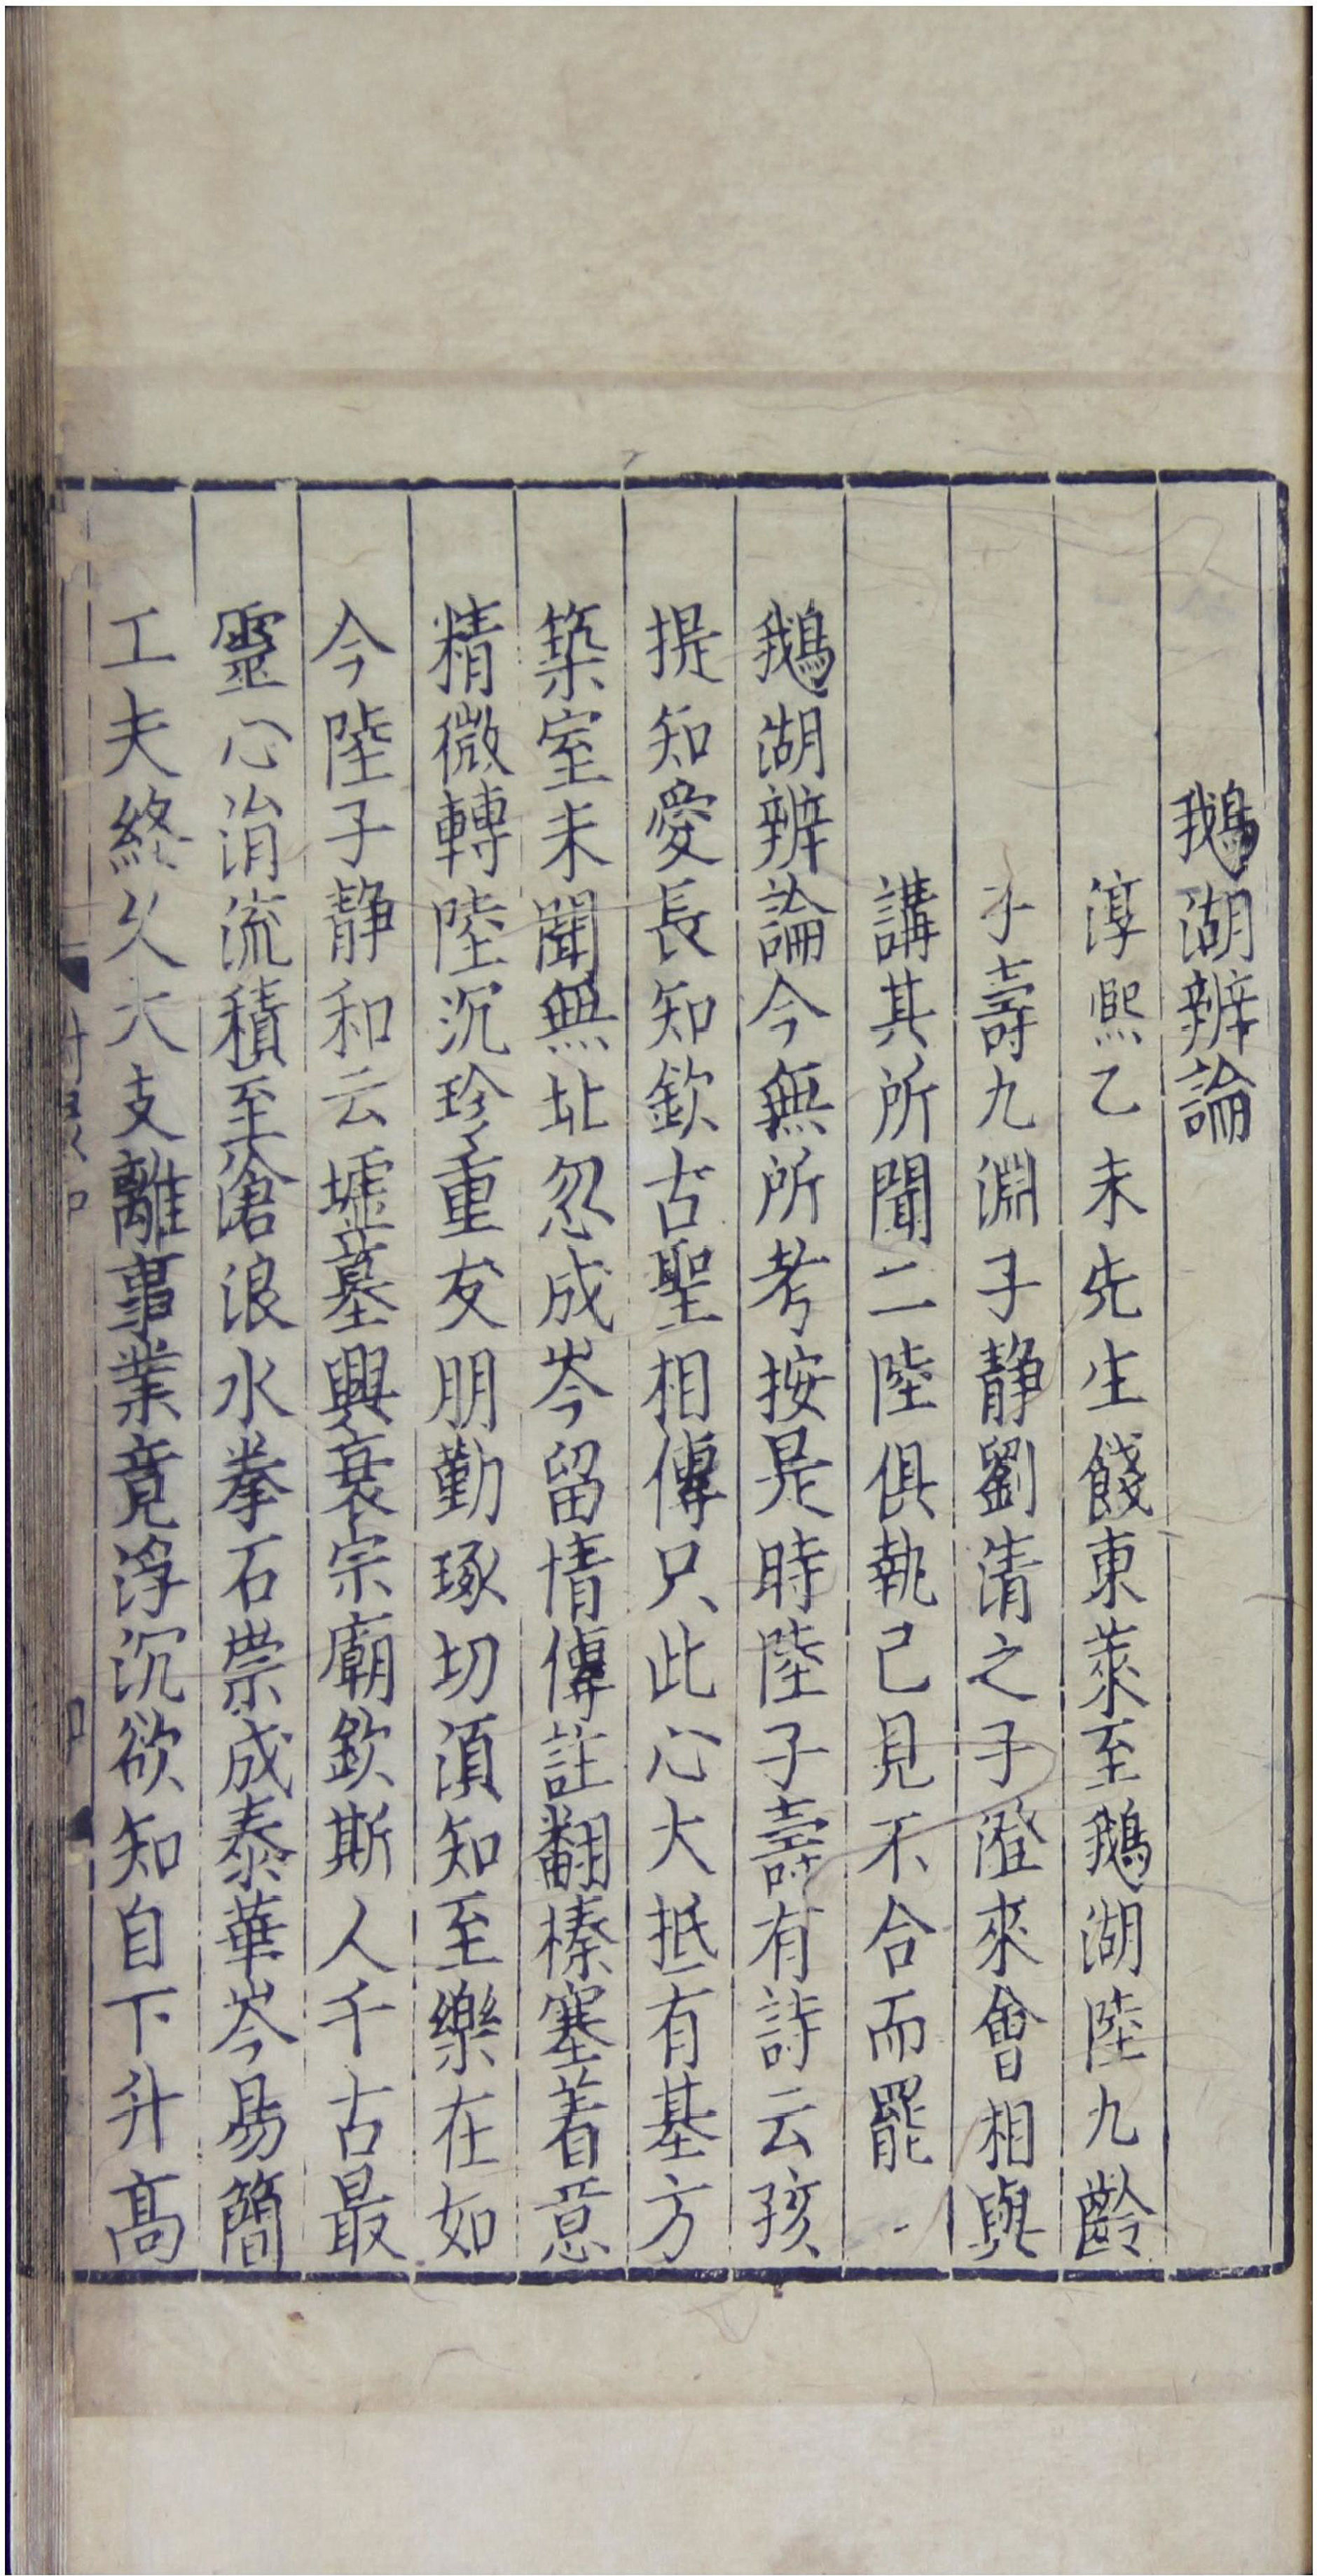 鵝湖辨論
淳熙乙未先生餞東萊至鵝湖陸九齡
子壽九淵子靜劉清之子澄來會相與
講其所聞二陸俱執己見不合而罷
鵝湖辨論今無所考按是時陸子壽有詩云孩
提知愛長知欽古聖相傳只此心大抵有基方
築室未聞無址忽成岑留情傳註翻榛塞着意
精微轉陸沉珍重友朋勤琢切須知至樂在如
今陸子靜和云墟墓興衰宗廟欽斯人千古最
靈心涓流積至滄浪水拳石崇成泰華岑易簡
工夫終久大支離事業竟浮沉欲知自下升高